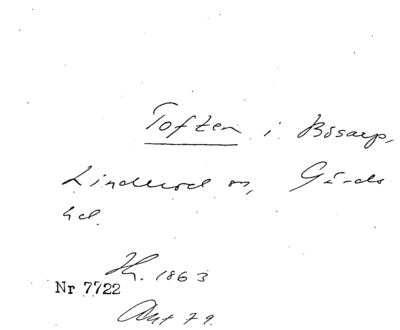 Toften i Bösarp,
Linderöd sn, Gärds
hd.
Hs. 1863
Nr 7722
Akt 79.